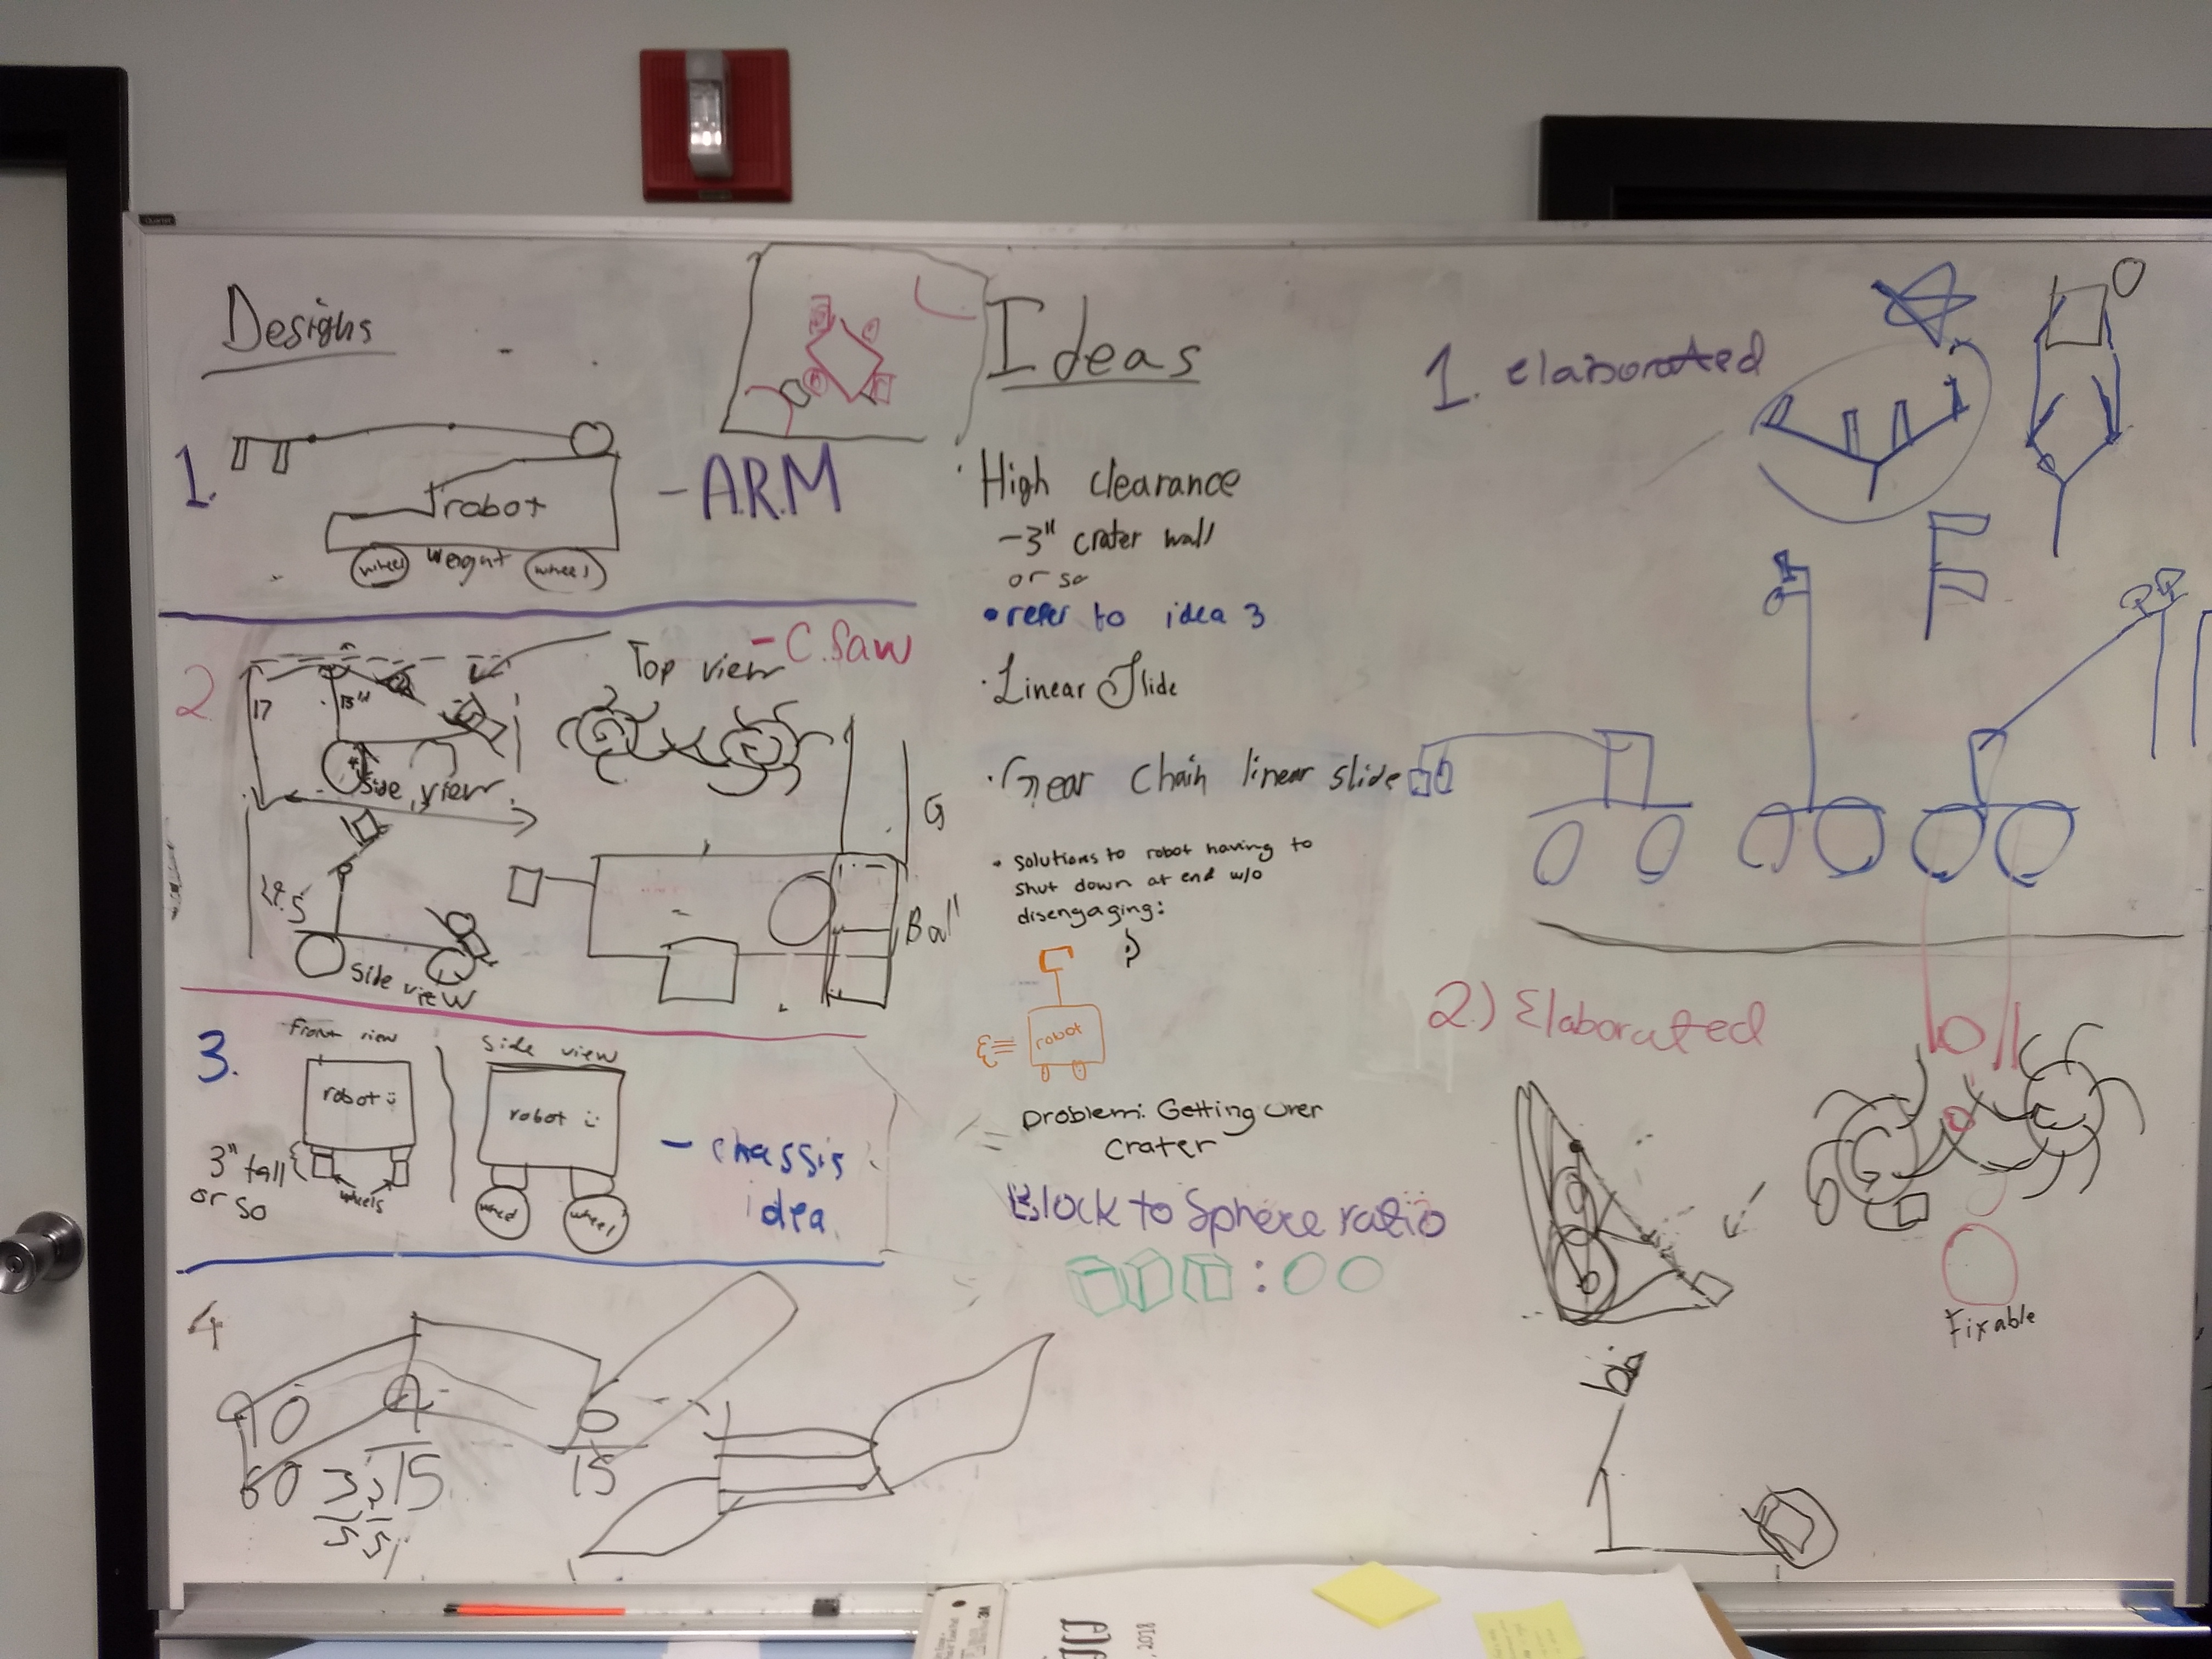 Designs
1.
robot
wheel
weight
wheel
- A.R.M
2.
- C.Saw
Top view
17
15"
Side view
G
Ball
side view
3.
Front view
Side view
robot :)
robot :)
3" tall
or so
wheels
wheel
wheel
- chassis
idea
4
10
60
15
15
Ideas
· High clearance
- 3" crater wall
or so
• refer to idea 3
· Linear Slide
· Gear Chain linear slide
• Solutions to robot having to
shut down at end w/o
disengaging:
robot
Problem: Getting over
Crater
Block to Sphere ratio
:
1. elaborated
2.) Elaborated
Fixable
3M
, 2018